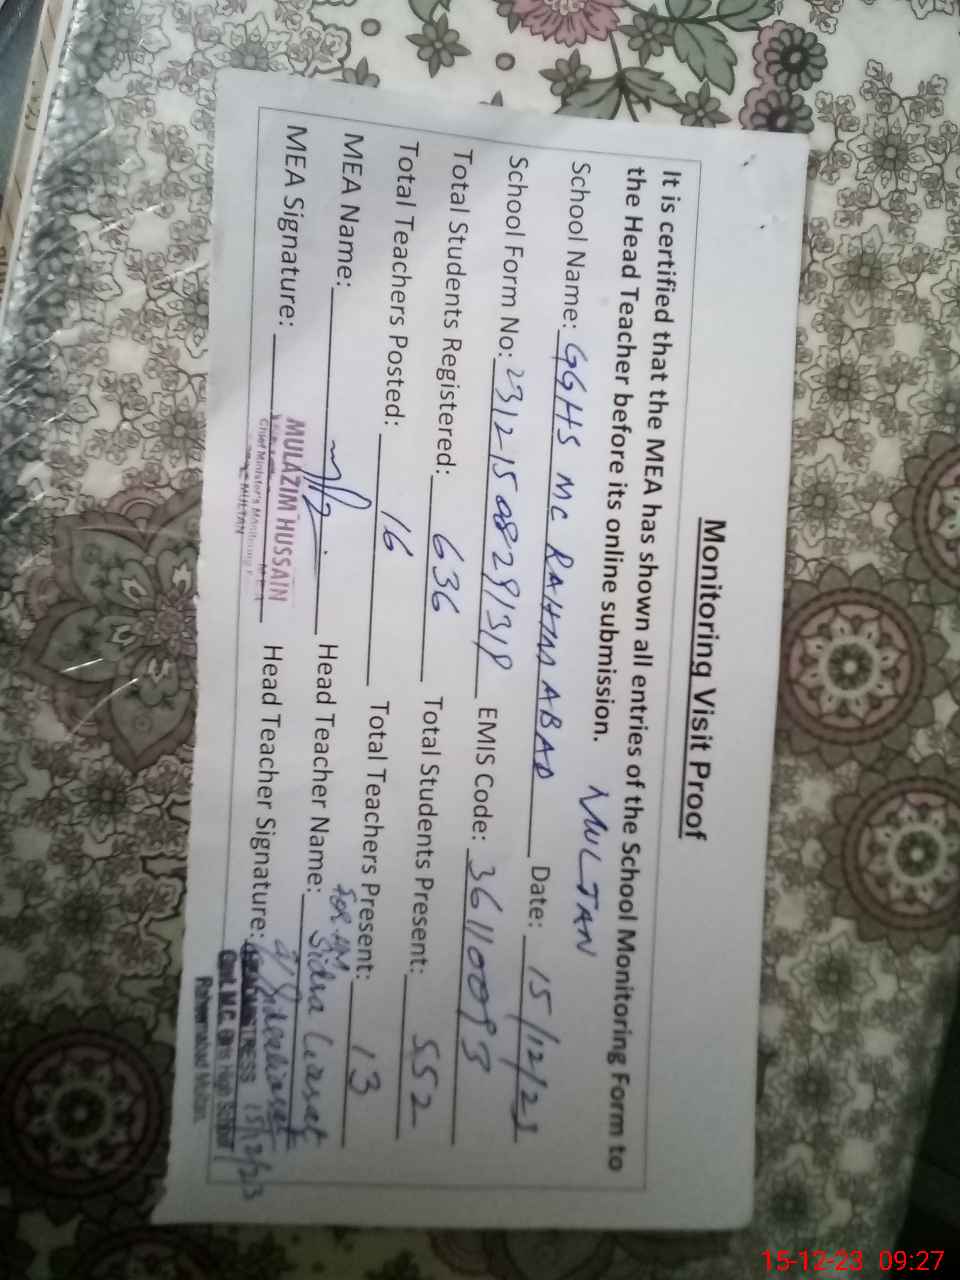 Monitoring Visit Proof
It is certified that the MEA has shown all entries of the School Monitoring Form to
the Head Teacher before its online submission.
MULTAN
School Name: GGHS MC RAHIM ABAD Date: 15/12/23
School Form No: EMIS Code: 36110093
Total Students Registered: 636 Total Students Present: 552
Total Teachers Posted: 16 Total Teachers Present: 13
FOR HM
MEA Name: Head Teacher Name: Sidra
MEA Signature: Head Teacher Signature:
MULAZIM HUSSAIN
Chief Minister's Monitoring
MULTAN
HEADMISTRESS 15/12/23
Govt. M.C. Girls High School
Raheemabad Multan.
15-12-23 09:27